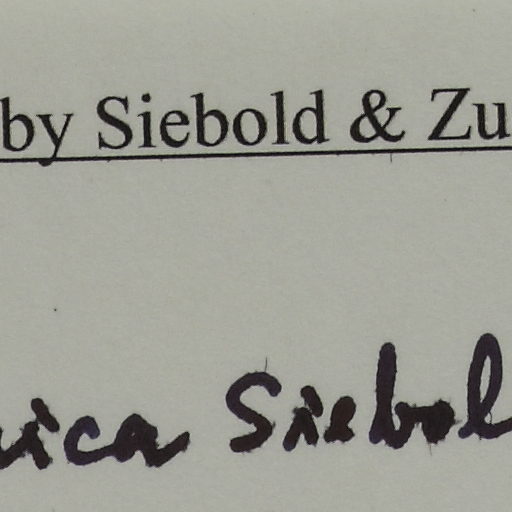 by Siebold & Zu
nica Siebol